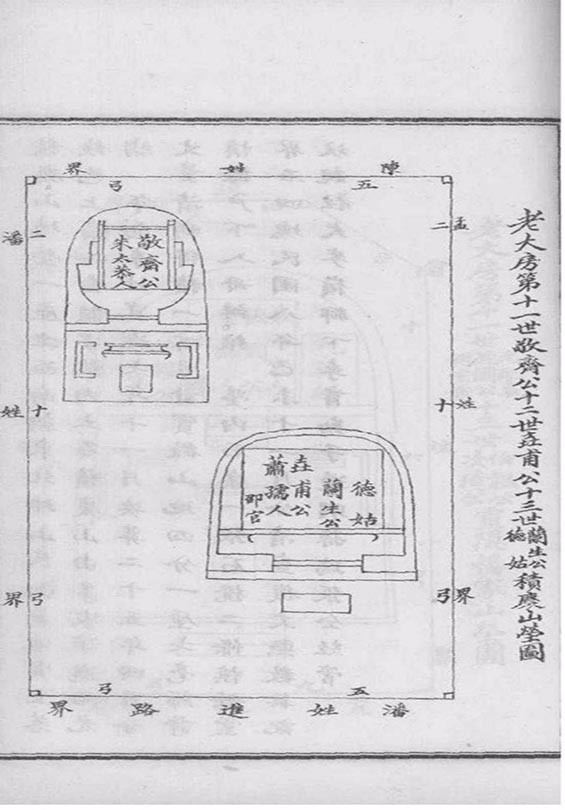 老大房第十一世敬齋公十二世垚甫公十三世蘭生公德姑積慶山塋圖
陳姓界
五弓
孟姓界
二十弓
敬齋公
太恭人
潘姓界
二十弓
德姑
蘭生公
垚甫公
蕭孺人
官
五弓
潘姓進路界